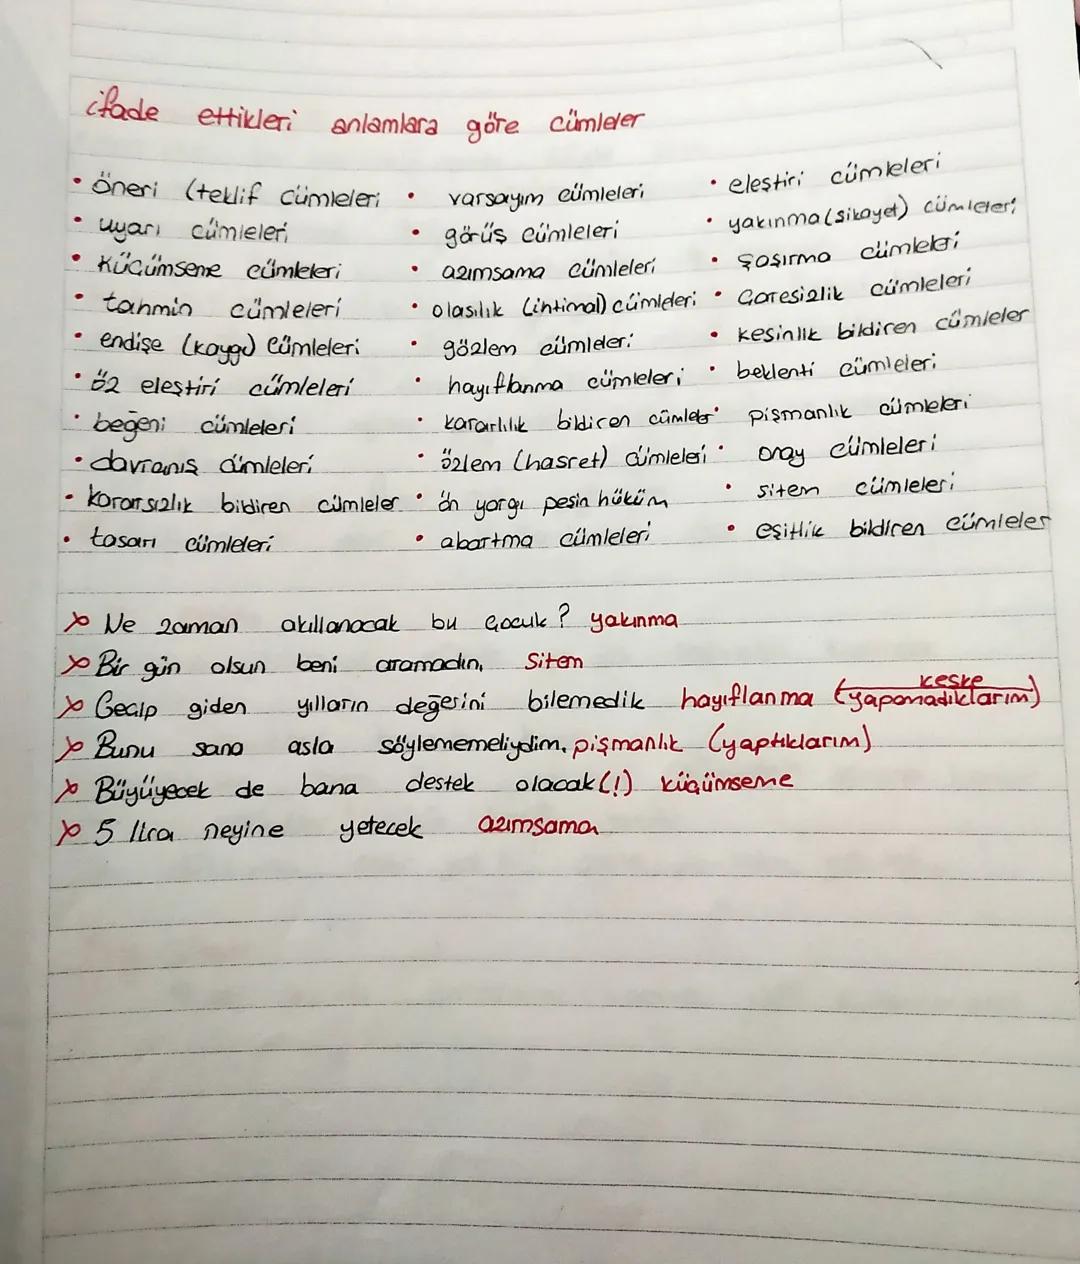 ifade ettikleri anlamlara göre cümleler
• öneri (teklif cümleleri
• uyarı cümleleri
• küçümseme cümleleri
• tahmin cümleleri
• endişe (kaygı) cümleleri
• öz eleştiri cümleleri
• beğeni cümleleri
• davranış cümleleri
• kararsızlık bildiren cümleler
• tasarı cümleleri
• varsayım cümleleri
• görüş cümleleri
• azımsama cümleleri
• olasılık (intimal) cümleleri
• gözlem cümleleri
• hayıflanma cümleleri
• kararlılık bildiren cümleler
• özlem (hasret) cümleleri
• ön yargı peşin hüküm
• abartma cümleleri
• eleştiri cümleleri
• yakınma (şikayet) cümleleri
• şaşırma cümleleri
• çaresizlik cümleleri
• kesinlik bildiren cümleler
• beklenti cümleleri
• pişmanlık cümleleri
• onay cümleleri
• sitem cümleleri
• eşitlik bildiren cümleler
Ne zaman akıllanacak bu çocuk? yakınma
Bir gün olsun beni aramadın. Sitem
Geçip giden yılların değerini bilemedik hayıflanma (keşke yapamadıklarım)
Bunu sana asla söylememeliydim. pişmanlık (yaptıklarım)
Büyüyecek de bana destek olacak (!) küçümseme
5 lira neyine yetecek azımsama